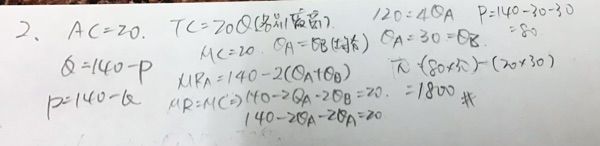 2. AC=20. TC=20Q
MC=20. QA=QB
Q=140-P
P=140-Q
MRA=140-2(QA+QB)
MR=MC=>140-2QA-2QB=20.
140-2QA-2QA=20
120=4QA
QA=30=QB.
P=140-30-30
=80
π=(80×30)-(20×30)
=1800 #